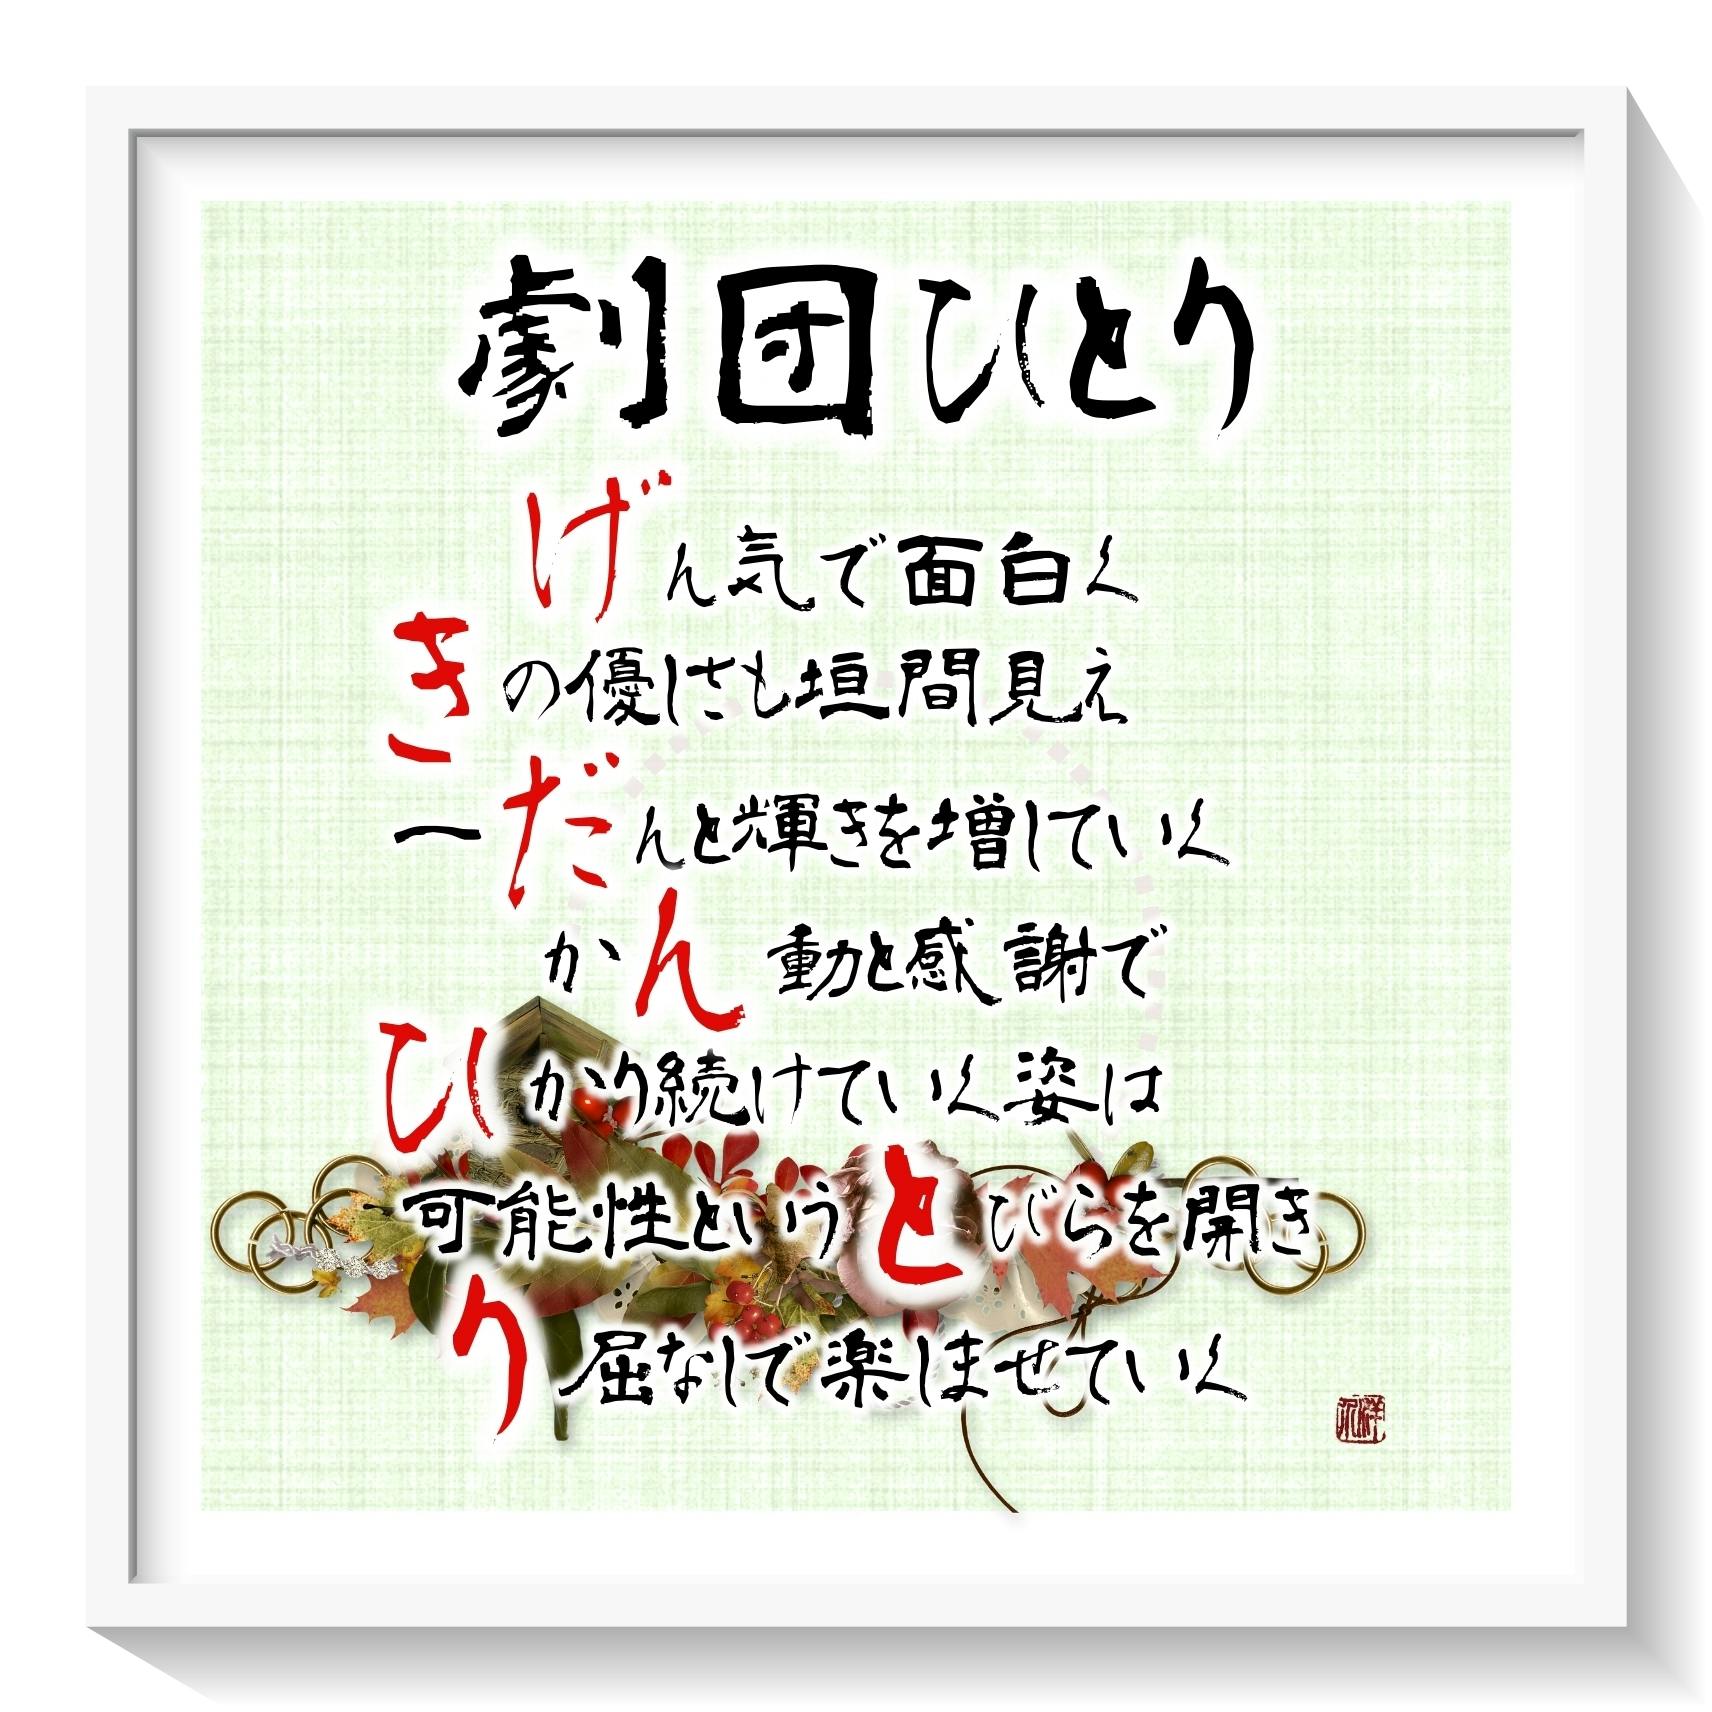 劇団ひとり
げん気で面白く
きの優しさも垣間見え
一だんと輝きを増していく
かん動と感謝で
ひかり続けていく姿は
可能性というとびらを開き
り屈なしで楽しませていく